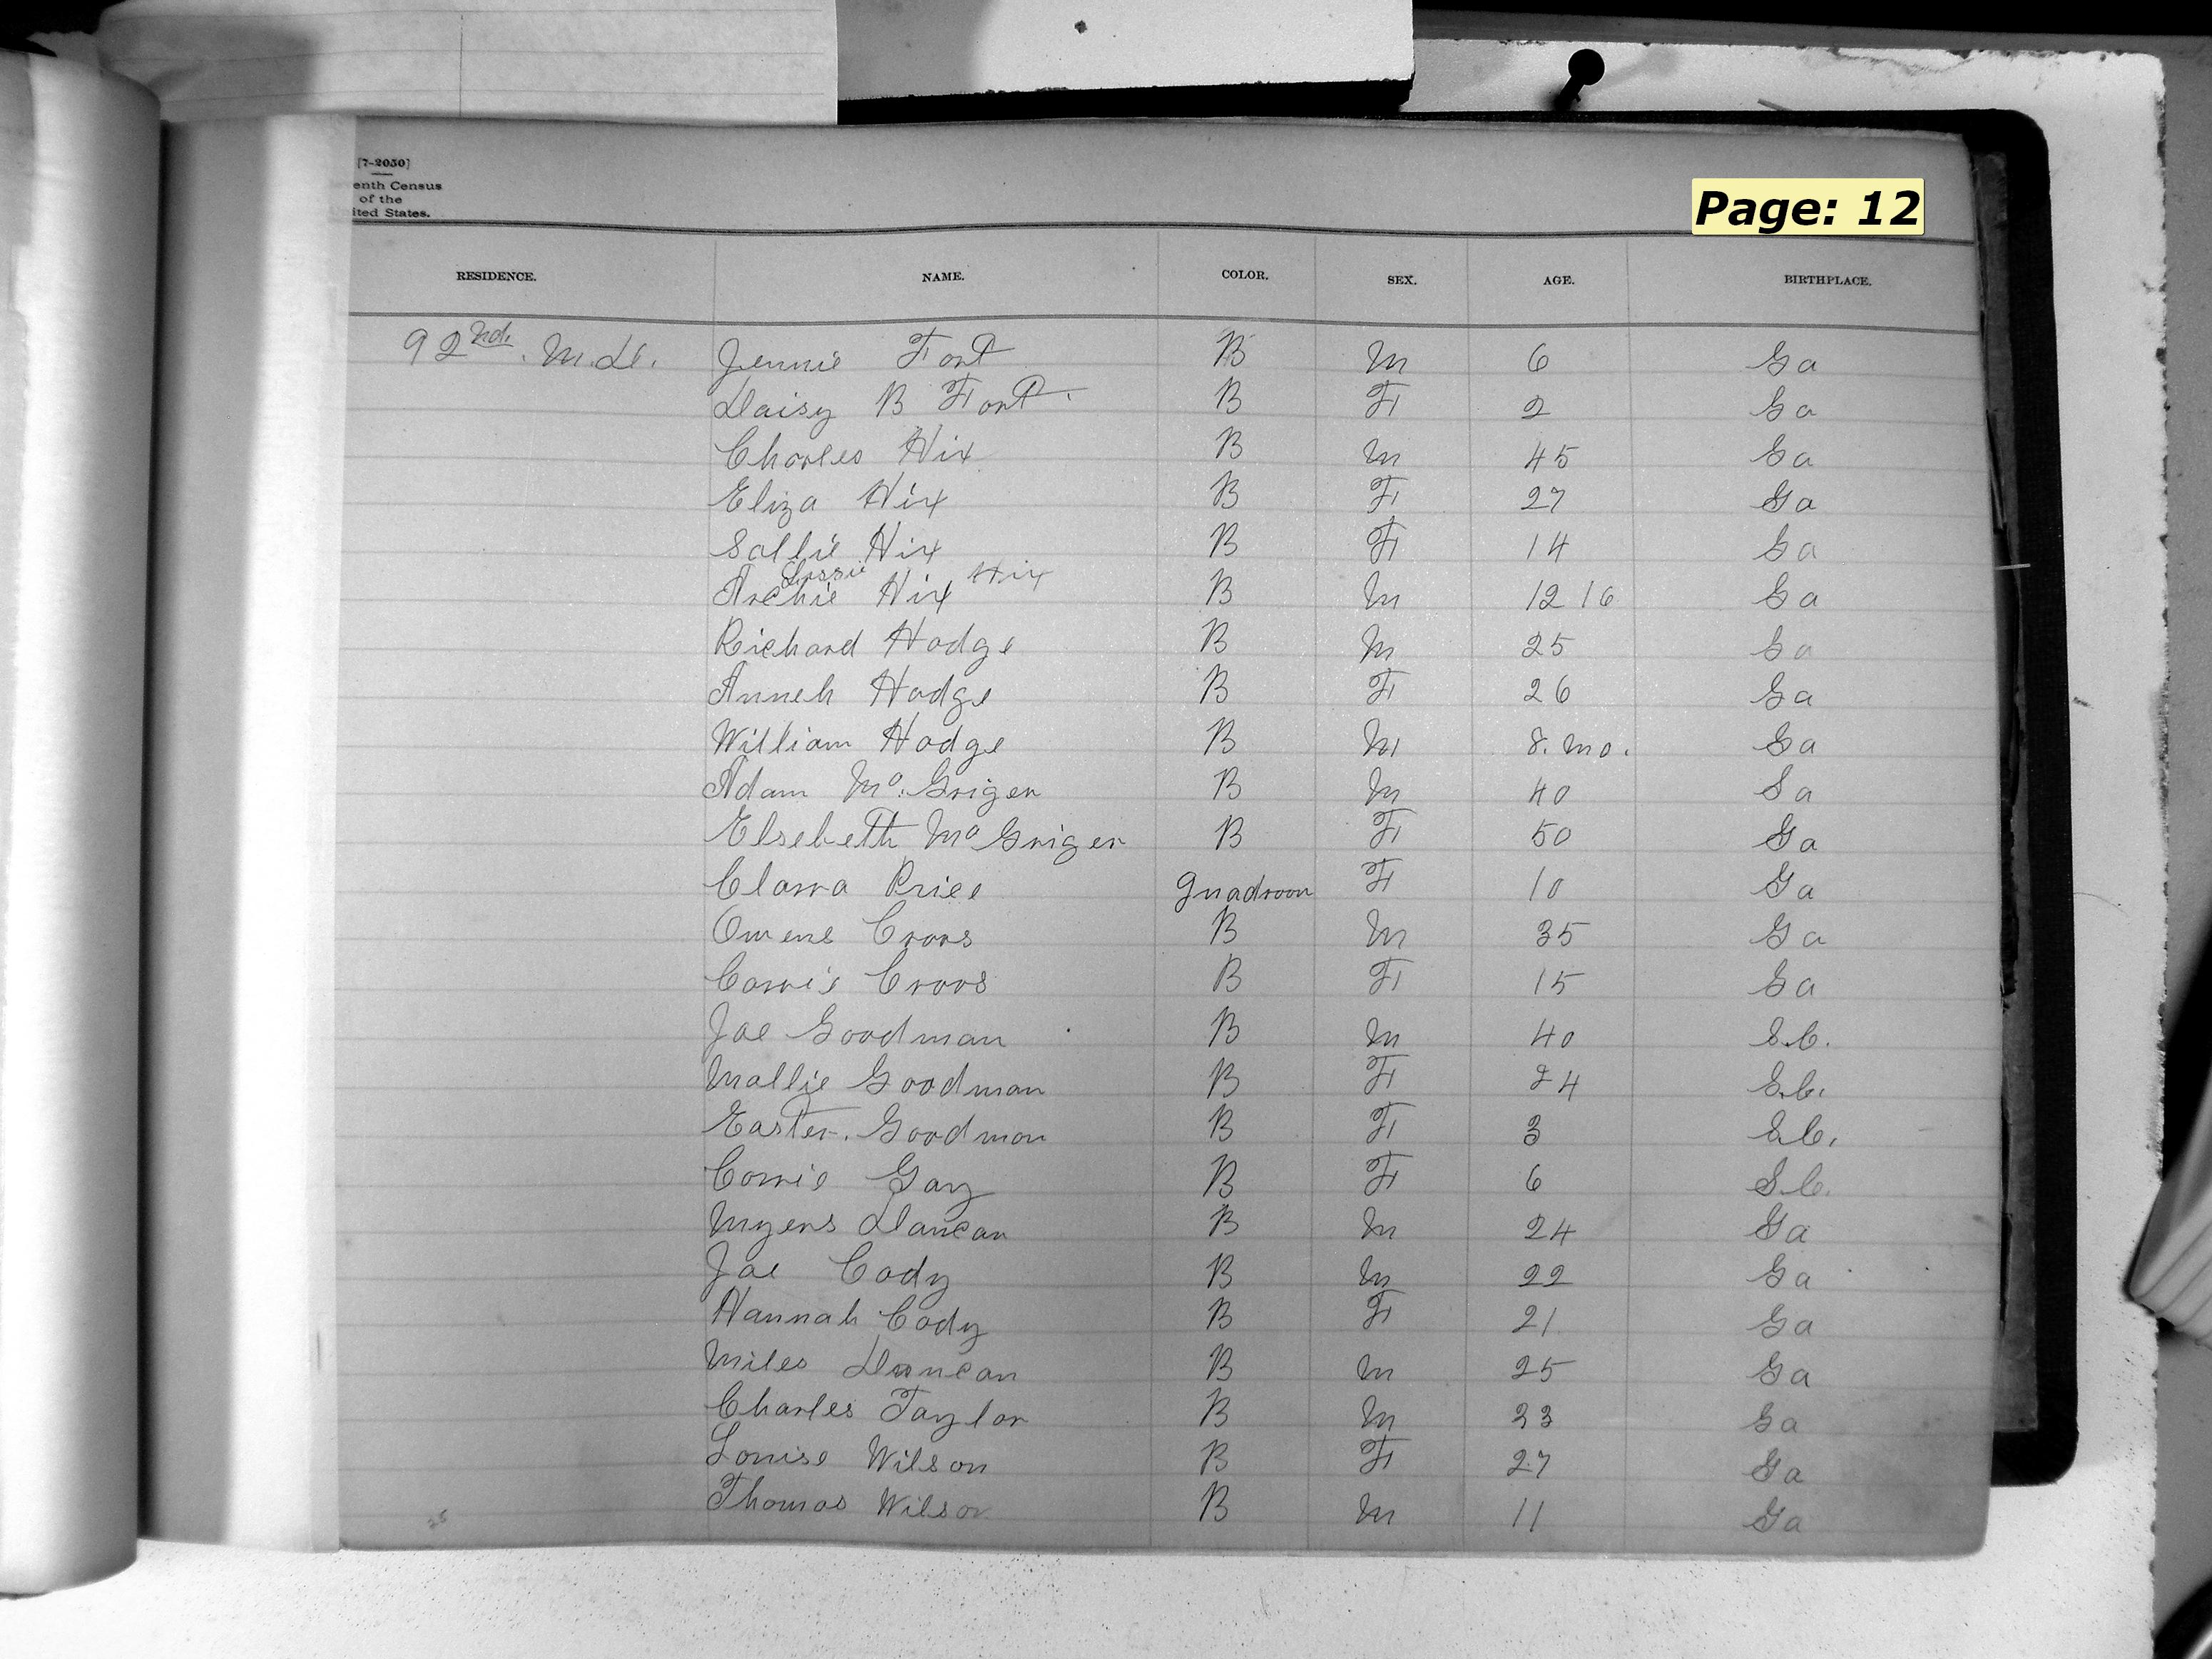 [7-2050]
enth Census
of the
ited States.
Page: 12
RESIDENCE. NAME. COLOR. SEX. AGE. BIRTHPLACE.
92nd. M.D. Jennie Fort B M 6 Ga
Daisy B Fort B F 2 Ga
Charles Hix B M 45 Ga
Eliza Hix B F 27 Ga
Sallie Hix B F 14 Ga
Lossie Hix
Archie Hix B M 12 16 Ga
Richard Hodge B M 25 Ga
Anneh Hodge B F 26 Ga
William Hodge B M 8. mo. Ga
Adam Mc. Griger B M 40 Ga
Elsebeth Mc Griger B F 50 Ga
Clarra Price Quadroon F 10 Ga
Owens Croos B M 35 Ga
Carrie Croos B F 15 Ga
Joe Goodman B M 40 S.C.
Mollie Goodman B F 24 S.C.
Easter. Goodman B F 3 S.C.
Corrie Gay B F 6 S.C.
Myers Duncan B M 24 Ga
Joe Cody B M 22 Ga
Hannah Cody B F 21 Ga
Miles Duncan B M 25 Ga
Charles Taylor B M 23 Ga
Louise Wilson B F 27 Ga
Thomas Wilson B M 11 Ga
25